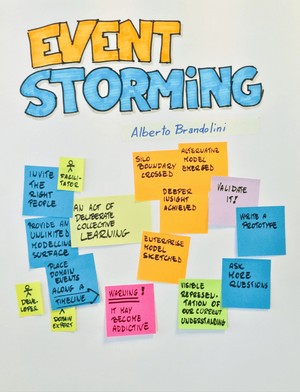 EVENT
STORMING
Alberto Brandolini
INVITE
THE
RIGHT
PEOPLE
FACILI-
TATOR
PROVIDE AN
UNLIMITED
MODELLING
SURFACE
AN ACT OF
DELIBERATE
COLLECTIVE
LEARNING
PLACE
DOMAIN
EVENTS
ALONG A
TIMELINE
DEVE-
LOPER
DOMAIN
EXPERT
SILO
BOUNDARY
CROSSED
ALTERNATIVE
MODEL
EMERGED
DEEPER
INSIGHT
ACHIEVED
VALIDATE
IT!
WRITE A
PROTOTYPE
ENTERPRISE
MODEL
SKETCHED
ASK
MORE
QUESTIONS
WARNING!
IT MAY
BECOME
ADDICTIVE
VISIBLE
REPRESEN-
TATION OF
OUR CURRENT
UNDERSTANDING